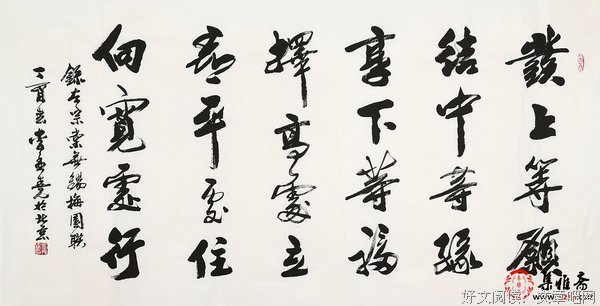 發上等願
结中等緣
享下等福
擇高處立
就平處住
向寬處行
錄左宗棠無錫梅園聯
丁酉
於北京
集雅斋
www.